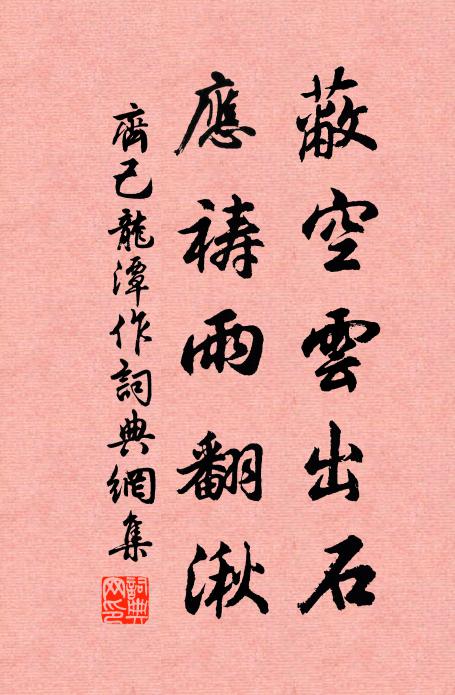 蔽空雲出石
應禱雨翻湫
齊己龍潭作詞典網集
詞典网印